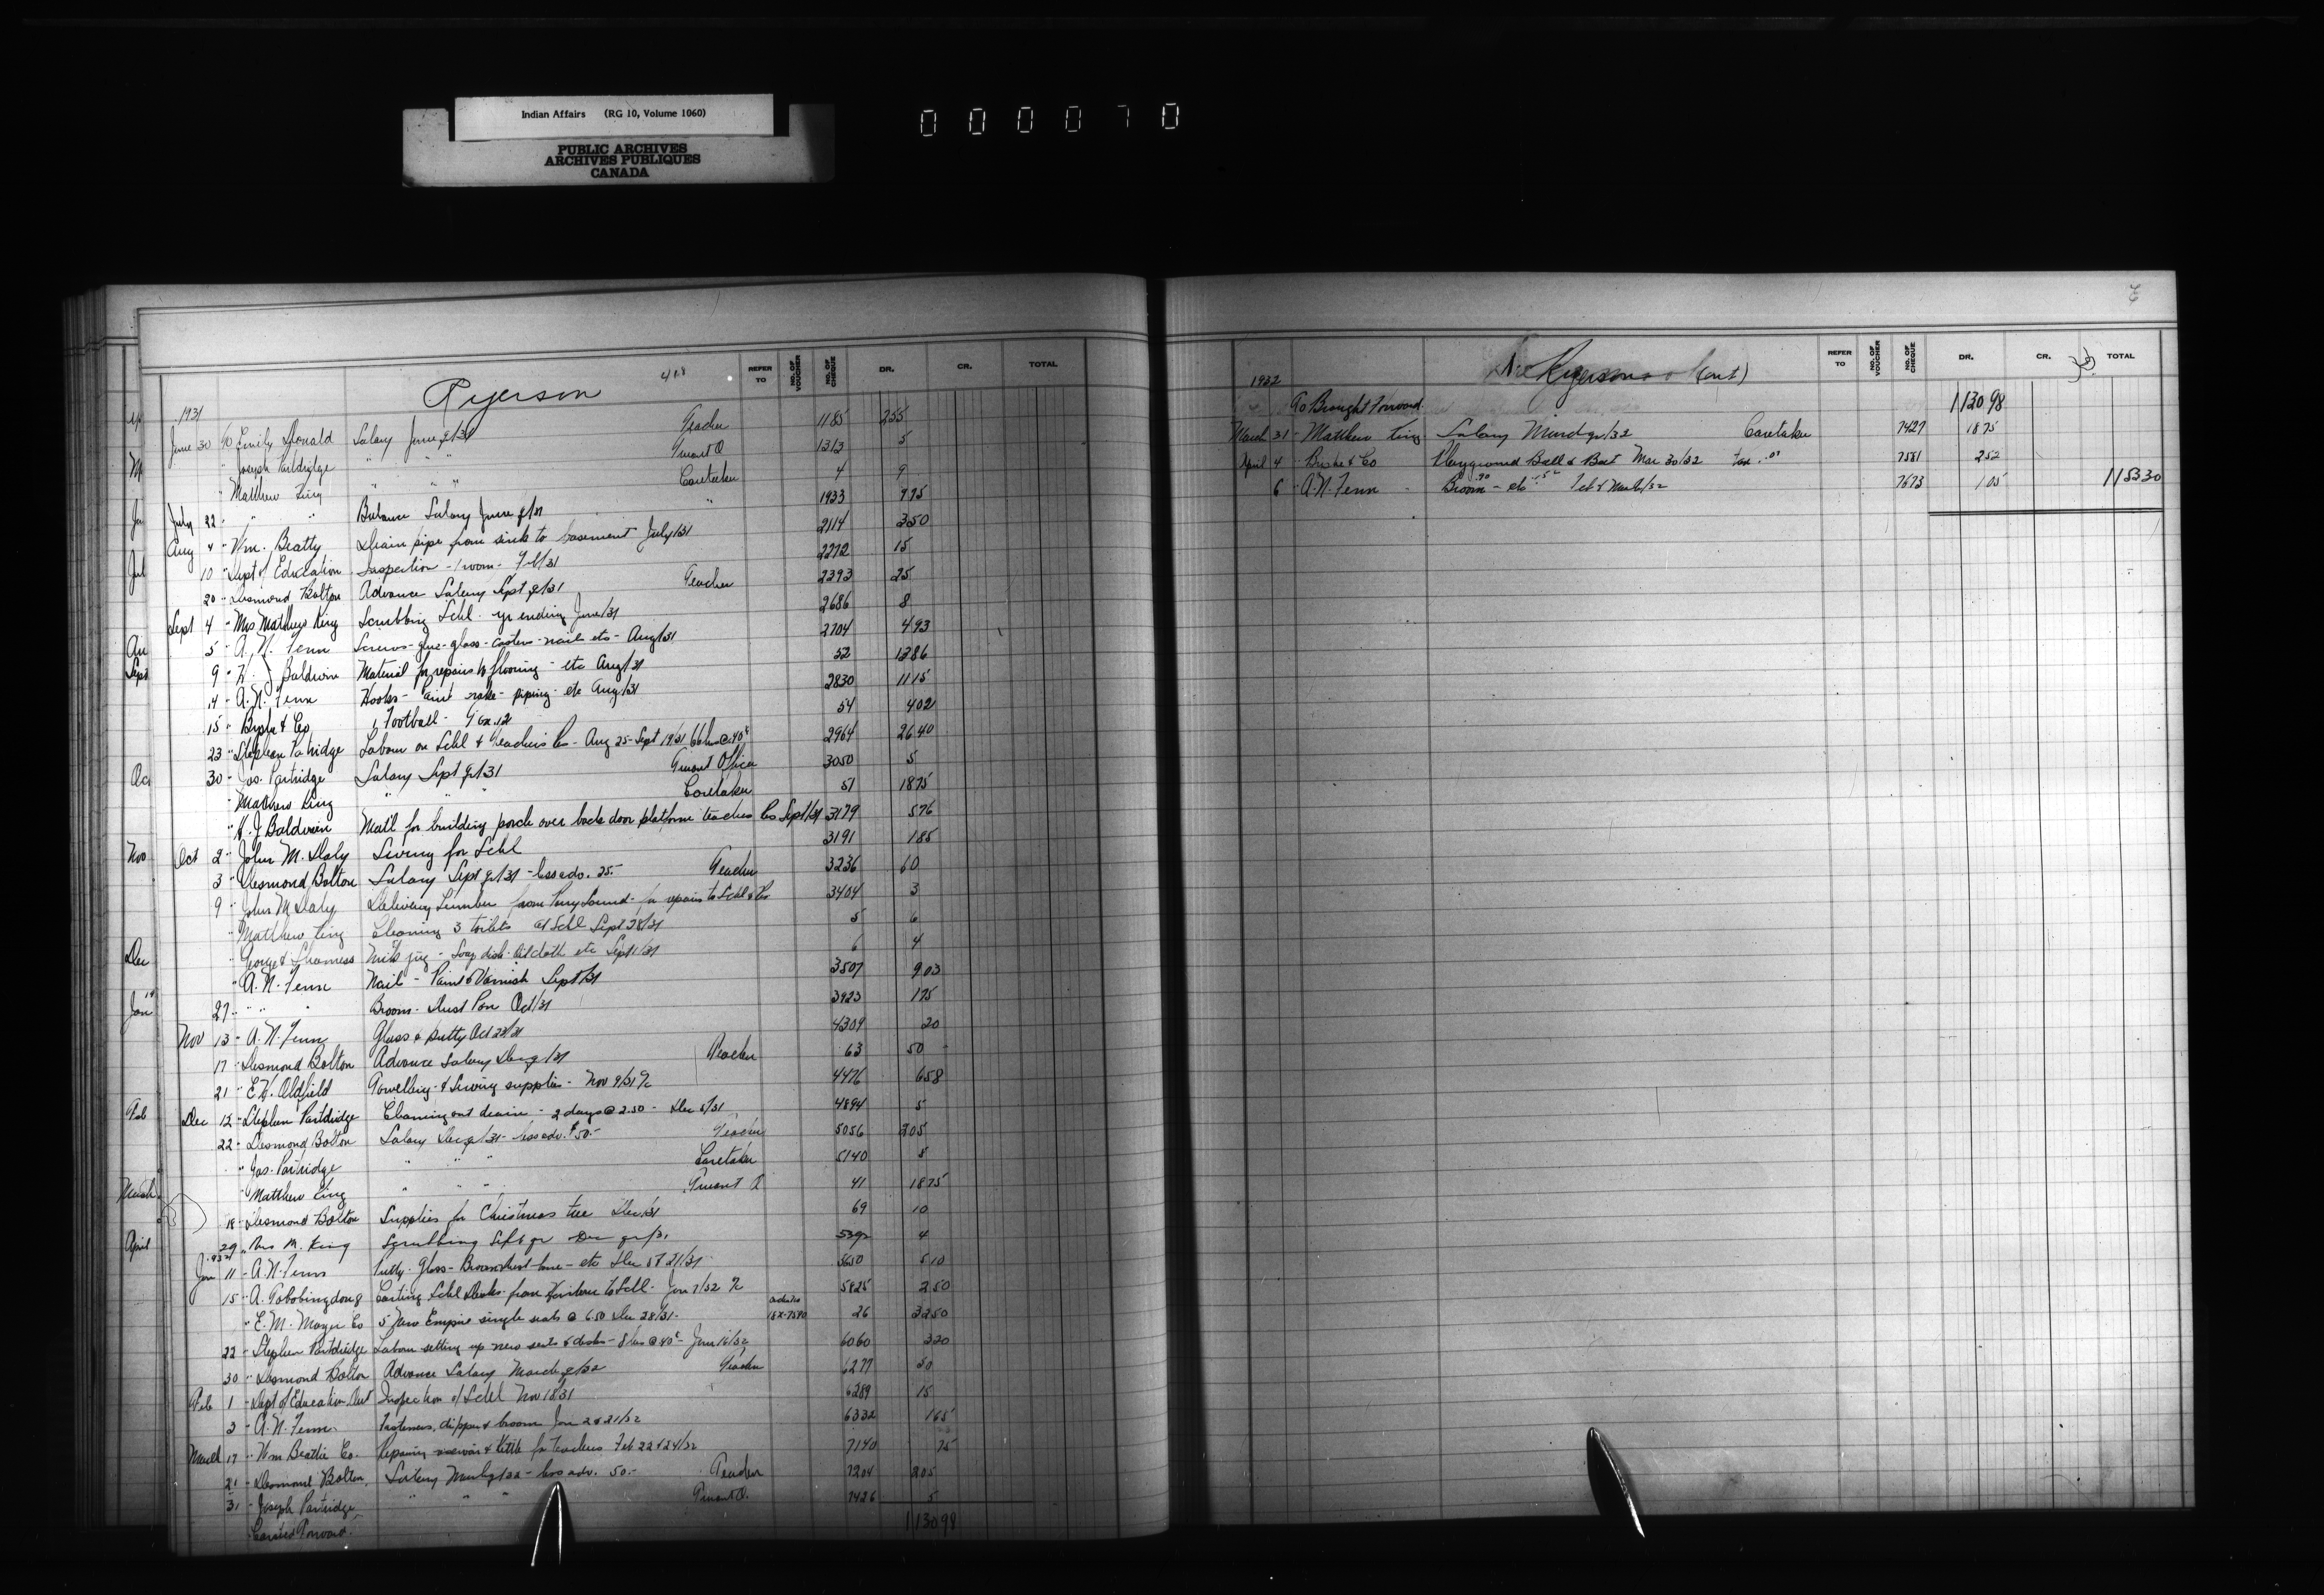 Indian Affairs (RG 10, Volume 1060)
PUBLIC ARCHIVES
ARCHIVES PUBLIQUES
CANADA
000070
REFER TO NO. OF VOUCHER NO. OF CHEQUE DR. CR. TOTAL
Ryerson 418
1931
June 30 To Emily Donald Salary June qr/31 Teacher 1185 255
" Joseph Partridge " " " Truant O 1313 5
" Matthew King " " " Caretaker 4 9
July 22 " " " Balance Salary June qr/31 " 1933 9 75
Aug 4 " Wm. Beatty Drain pipe from sink to basement July/31 2114 3 50
10 " Dept of Education Inspection - 1 room - Feb/31 2272 15
20 " Desmond Bolton Advance Salary Sept qr/31 Teacher 2393 25
Sept 4 " Mrs Matthew King Scrubbing Schl. yr ending June/31 2686 8
5 " A. N. Fenn Screws - glue - glass - casters - nails etc - Aug/31 2704 4 93
9 " H. J Baldwin Material for repairs to flooring - etc Aug/31 52 13 86
14 " A. N. Fenn Hooks - rake - piping - etc Aug/31 2830 11 15
15 " & Co 1 Football - Tax .12 54 4 02
23 " Stephen Partridge Labour on Schl & Teachers Res - Aug 25 - Sept 19/31 66 hrs @ .40¢ 2964 26 40
30 " Jos. Partridge Salary Sept qr/31 Truant Officer 3050 5
" Mathew King " " Caretaker 51 18 75
" H. J Baldwin Mat'l for building porch over back door platform teachers Res Sept/31 3179 5 76
Oct 2 " John M. Daly for Schl 3191 1 85
3 " Desmond Bolton Salary Sept qr/31 - less adv. 25.- Teacher 3236 60
9 " John M. Daly Delivering Lumber from Parry Sound - for repairs to Schl & Res 3404 3
" Matthew King Cleaning 3 toilets at Schl Sept 28/31 5 6
" Milk jug - Soap dish - Oilcloth etc Sept 1/31 6 4
" A. N. Fenn Nails - Paint & Varnish Sept/31 3507 9 03
27 " " " Broom - Dust Pan Oct/31 3923 1 75
Nov 13 " A. N. Fenn Glass & putty Oct 23/31 4309 20
17 " Desmond Bolton Advance Salary Dec qr/31 Teacher 63 50
21 " E. H. Oldfield Towelling & Sewing supplies - Nov 9/31 4476 6 58
Dec 12 " Stephen Partridge Cleaning out drain - 2 days @ 2.50 - Dec 5/31 4894 5
22 " Desmond Bolton Salary Dec qr/31 - less adv. $50.- Teacher 5056 205
" Jos. Partridge " " " Caretaker 5140 5
" Matthew King " " " Truant O 41 18 75
18 " Desmond Bolton Supplies for Christmas tree Dec/31 69 10
29 " Mrs M. King Scrubbing Sept qr Dec qr/31 4
1932
Jan 11 " A. N. Fenn Putty - glass - Broom - etc Dec 5 & 21/31 5650 5 10
15 " A. Tobobingdong Carting Schl Desks from to Schl - Jan 7/32 5825 2 50
" E. M. Moyer Co 5 New Empire single seats @ 6.50 Dec 28/31 - 26 32 50
22 " Stephen Partridge Labour setting up new seats & desks - 8 hrs @ .40¢ - Jan 16/32 6060 3 20
30 " Desmond Bolton Advance Salary March qr/32 Teacher 6277 50
Feb 1 " Dept of Education Ont Inspection of Schl Nov 18/31 6289 15
3 " A. N. Fenn Fasteners, dipper & broom Jan 2 & 21/32 6332 1 65
March 17 " Wm Beattie Co. Repairing & Kettle for teachers Feb 22 & 24/32 7140 75
21 " Desmond Bolton Salary March qr/32 - less adv. 50.- Teacher 7204 205
31 " Joseph Partridge " " " Truant O. 7426 5
Carried Forward. 1130 98
REFER TO NO. OF VOUCHER NO. OF CHEQUE DR. CR. TOTAL
Ryerson (Cont)
1932
To Brought Forward 1130 98
March 31 - Matthew King Salary March qr/32 Caretaker 7427 18 75
April 4 " & Co Playground Ball & Bat Mar 30/32 Tax 7581 2 52
6 " A. N. Fenn Broom .90 - etc .15 Feb & March/32 7673 1 05 1153 30